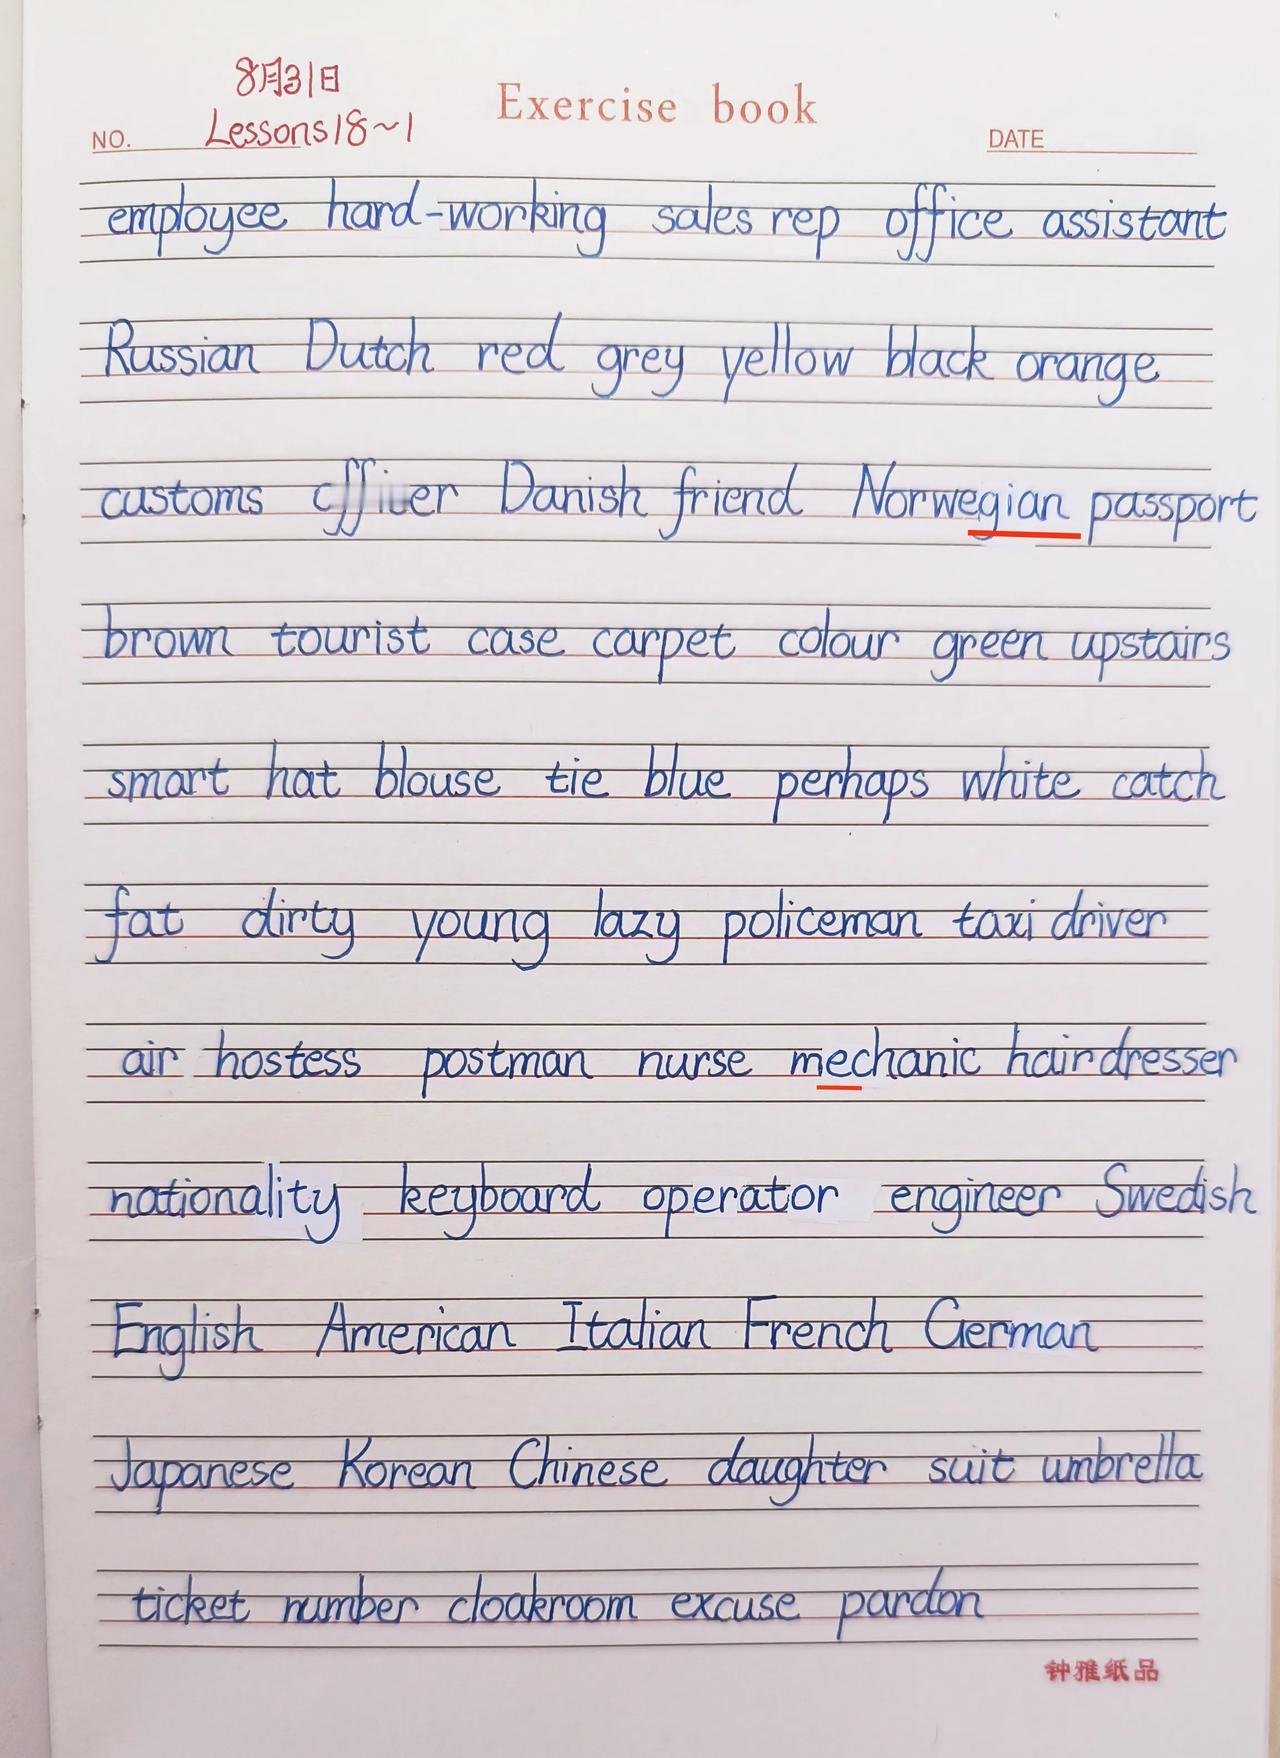 8月31日
Exercise book
NO. Lessons18~1
DATE
employee hard-working sales rep office assistant
Russian Dutch red grey yellow black orange
customs officer Danish friend Norwegian passport
brown tourist case carpet colour green upstairs
smart hat blouse tie blue perhaps white catch
fat dirty young lazy policeman taxi driver
air hostess postman nurse mechanic hairdresser
nationality keyboard operator engineer Swedish
English American Italian French German
Japanese Korean Chinese daughter suit umbrella
ticket number cloakroom excuse pardon
钟雅纸品